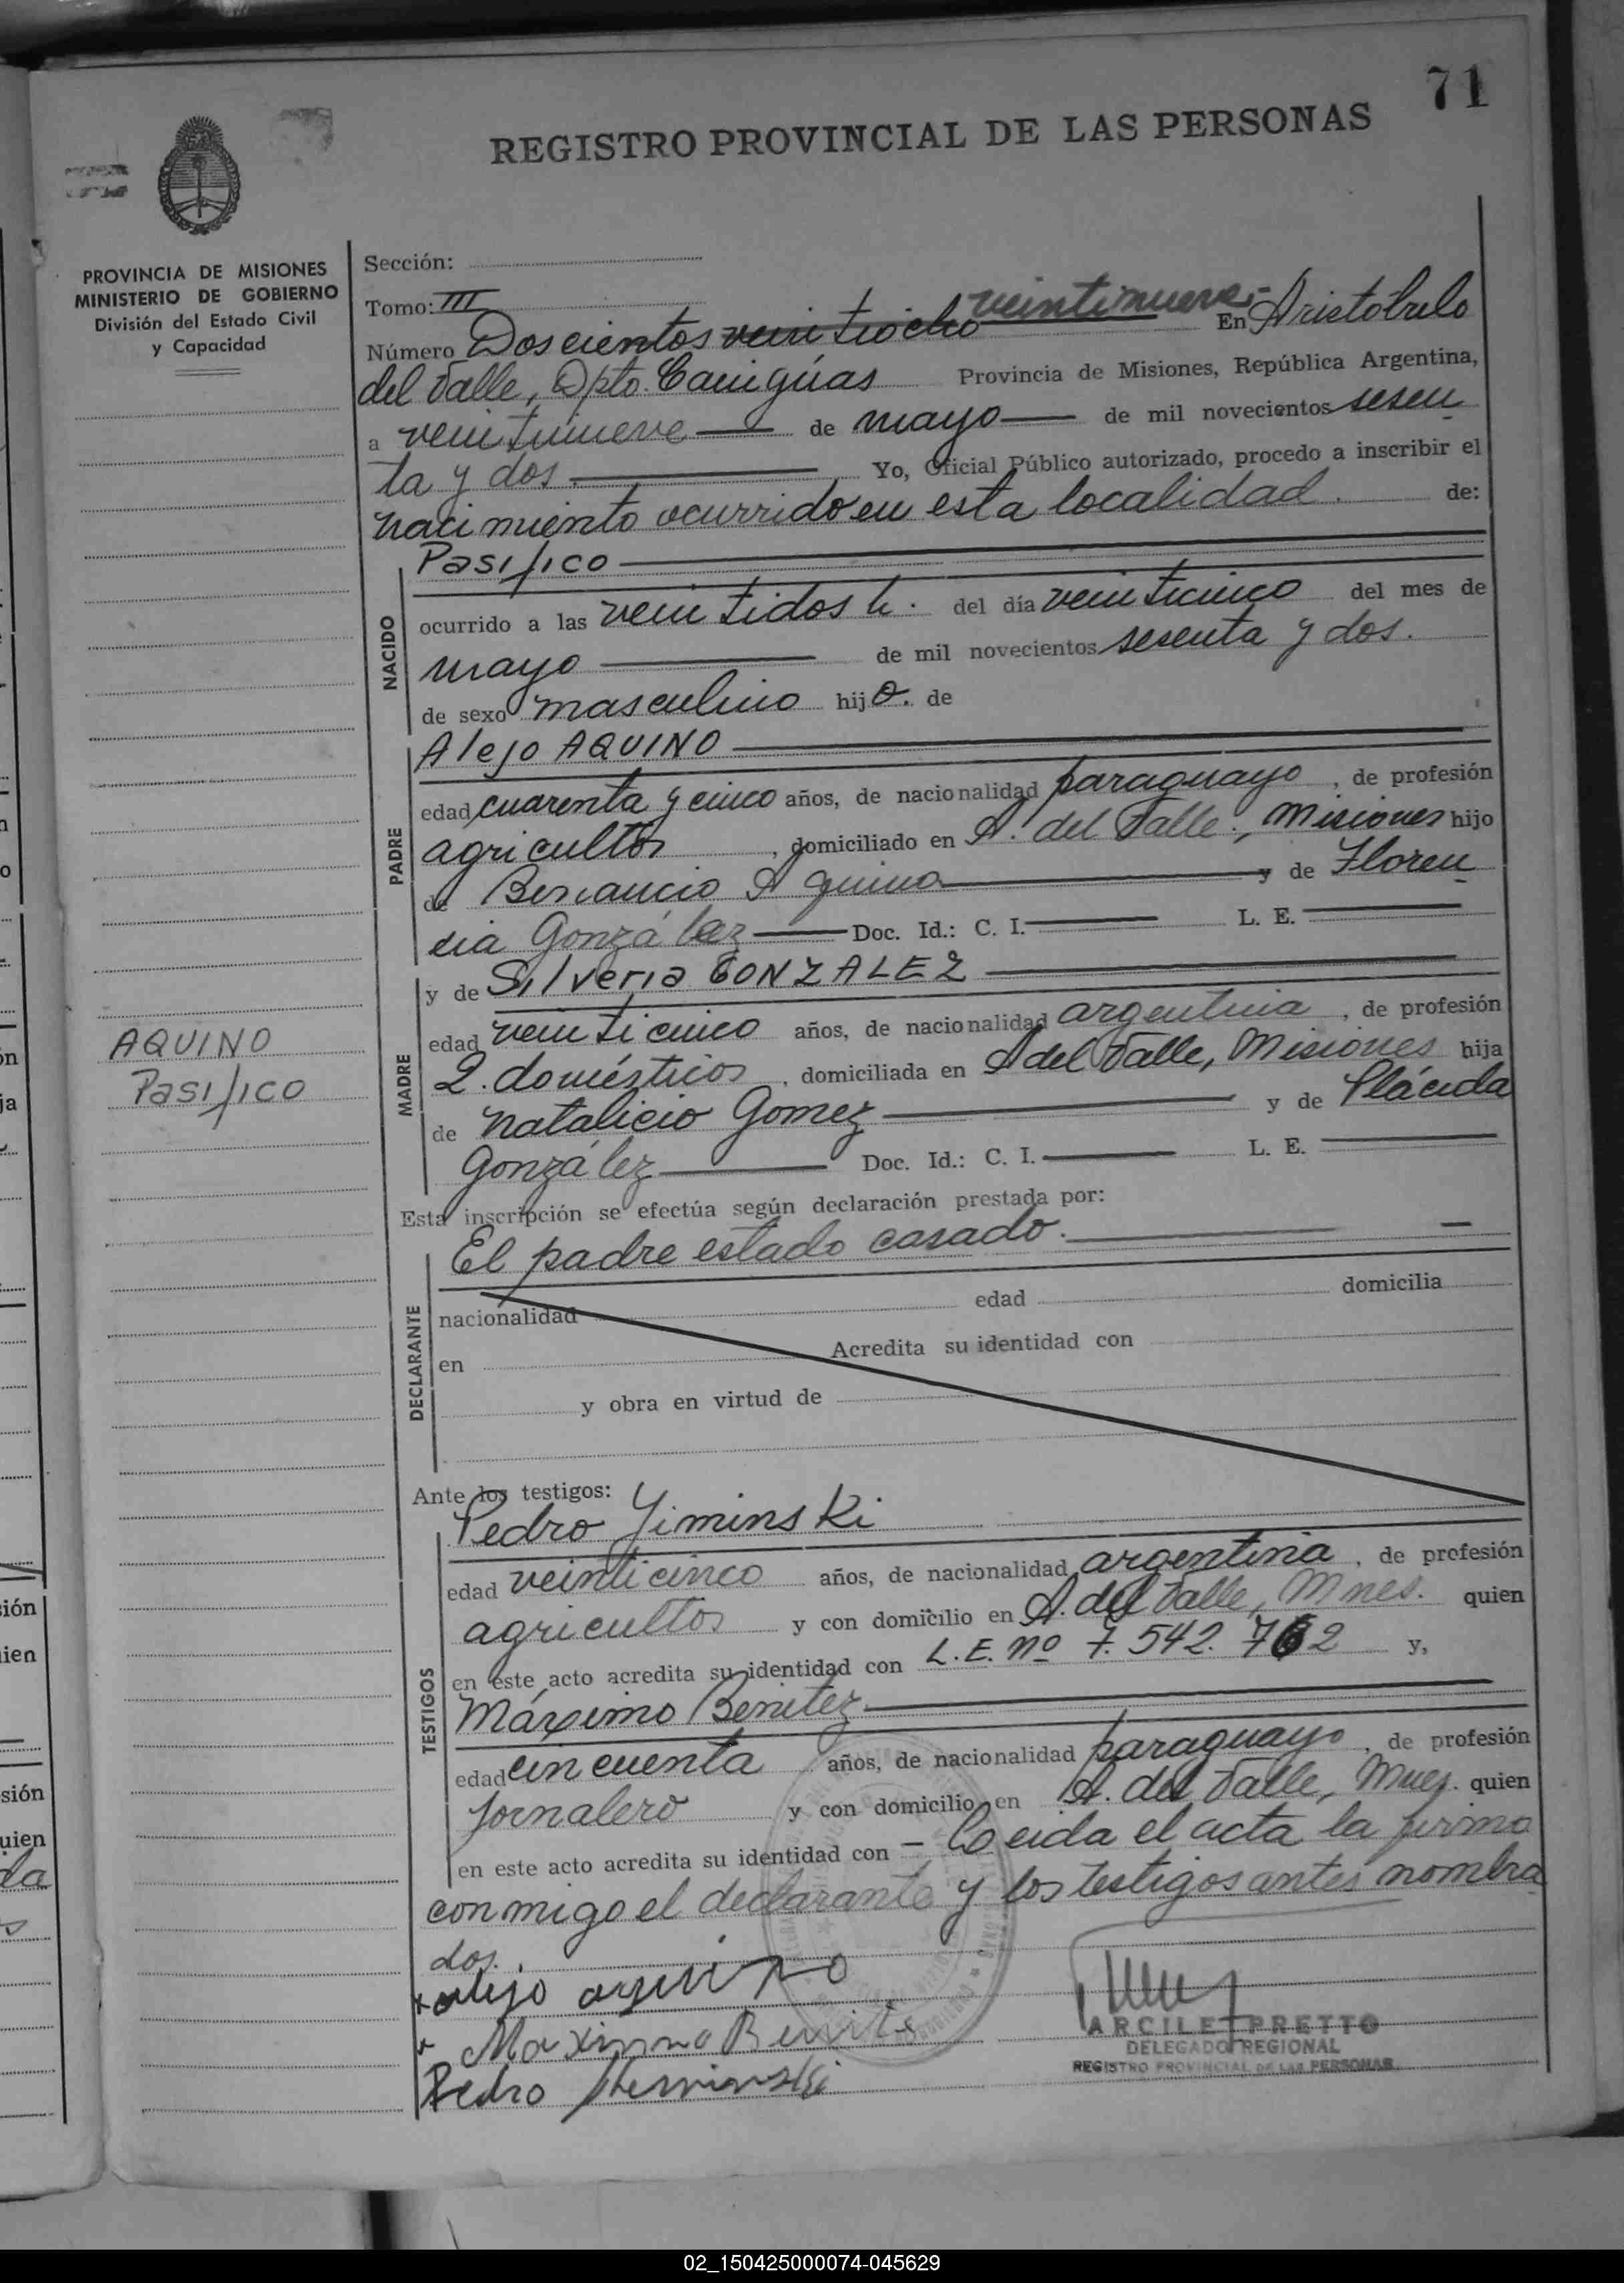 71
REGISTRO PROVINCIAL DE LAS PERSONAS
PROVINCIA DE MISIONES
MINISTERIO DE GOBIERNO
División del Estado Civil
y Capacidad
AQUINO
Pasifico
Sección:
Tomo: III
veintinueve.-
Número Doscientos veintiocho En Aristóbulo
del Valle, Dpto. Cainguas Provincia de Misiones, República Argentina,
a veintinueve de mayo de mil novecientos sesen
ta y dos. Yo, Oficial Público autorizado, procedo a inscribir el
nacimiento ocurrido en esta localidad. de:
NACIDO
Pasifico
ocurrido a las veintidos h. del día veinticinco del mes de
mayo de mil novecientos sesenta y dos.
de sexo masculino hijo. de
PADRE
Alejo AQUINO
edad cuarenta y cinco años, de nacionalidad paraguayo, de profesión
agricultor, domiciliado en A. del Valle, Misiones hijo
de Aquino y de Floren
cia González Doc. Id.: C. I. L. E.
MADRE
y de Silveria GONZALEZ
edad veinticinco años, de nacionalidad argentina, de profesión
Q. domésticos, domiciliada en A del Valle, Misiones hija
de Natalicio Gomez y de Plácida
González Doc. Id.: C. I. L. E.
Esta inscripción se efectúa según declaración prestada por:
DECLARANTE
El padre estado casado.
nacionalidad edad domicilia
en Acredita su identidad con
y obra en virtud de
Ante los testigos:
TESTIGOS
Pedro Yiminski
edad veinticinco años, de nacionalidad argentina, de profesión
agricultor y con domicilio en A. del Valle, Mnes. quien
en este acto acredita su identidad con L.E. nº 7.542.762 y,
Máximo Benitez
edad cincuenta años, de nacionalidad paraguayo, de profesión
jornalero y con domicilio en A. del Valle, Mnes. quien
en este acto acredita su identidad con - Leida el acta la firma
conmigo el declarante y los testigos antes nombra
dos.
alejo aquino
Maximo Benite
Pedro
ARCILE PRETTO
DELEGADO REGIONAL
REGISTRO PROVINCIAL DE LAS PERSONAS
02_150425000074-045629